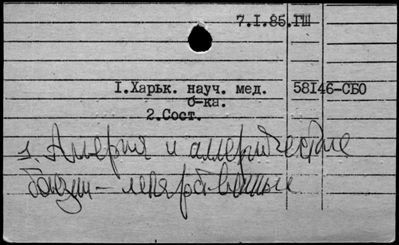 7.I.85.ГШ
I.Харьк. науч. мед. 58146-СБО
б-ка.
2.Сост.
1. Аллергия и аллергические
болезни - лекарственные